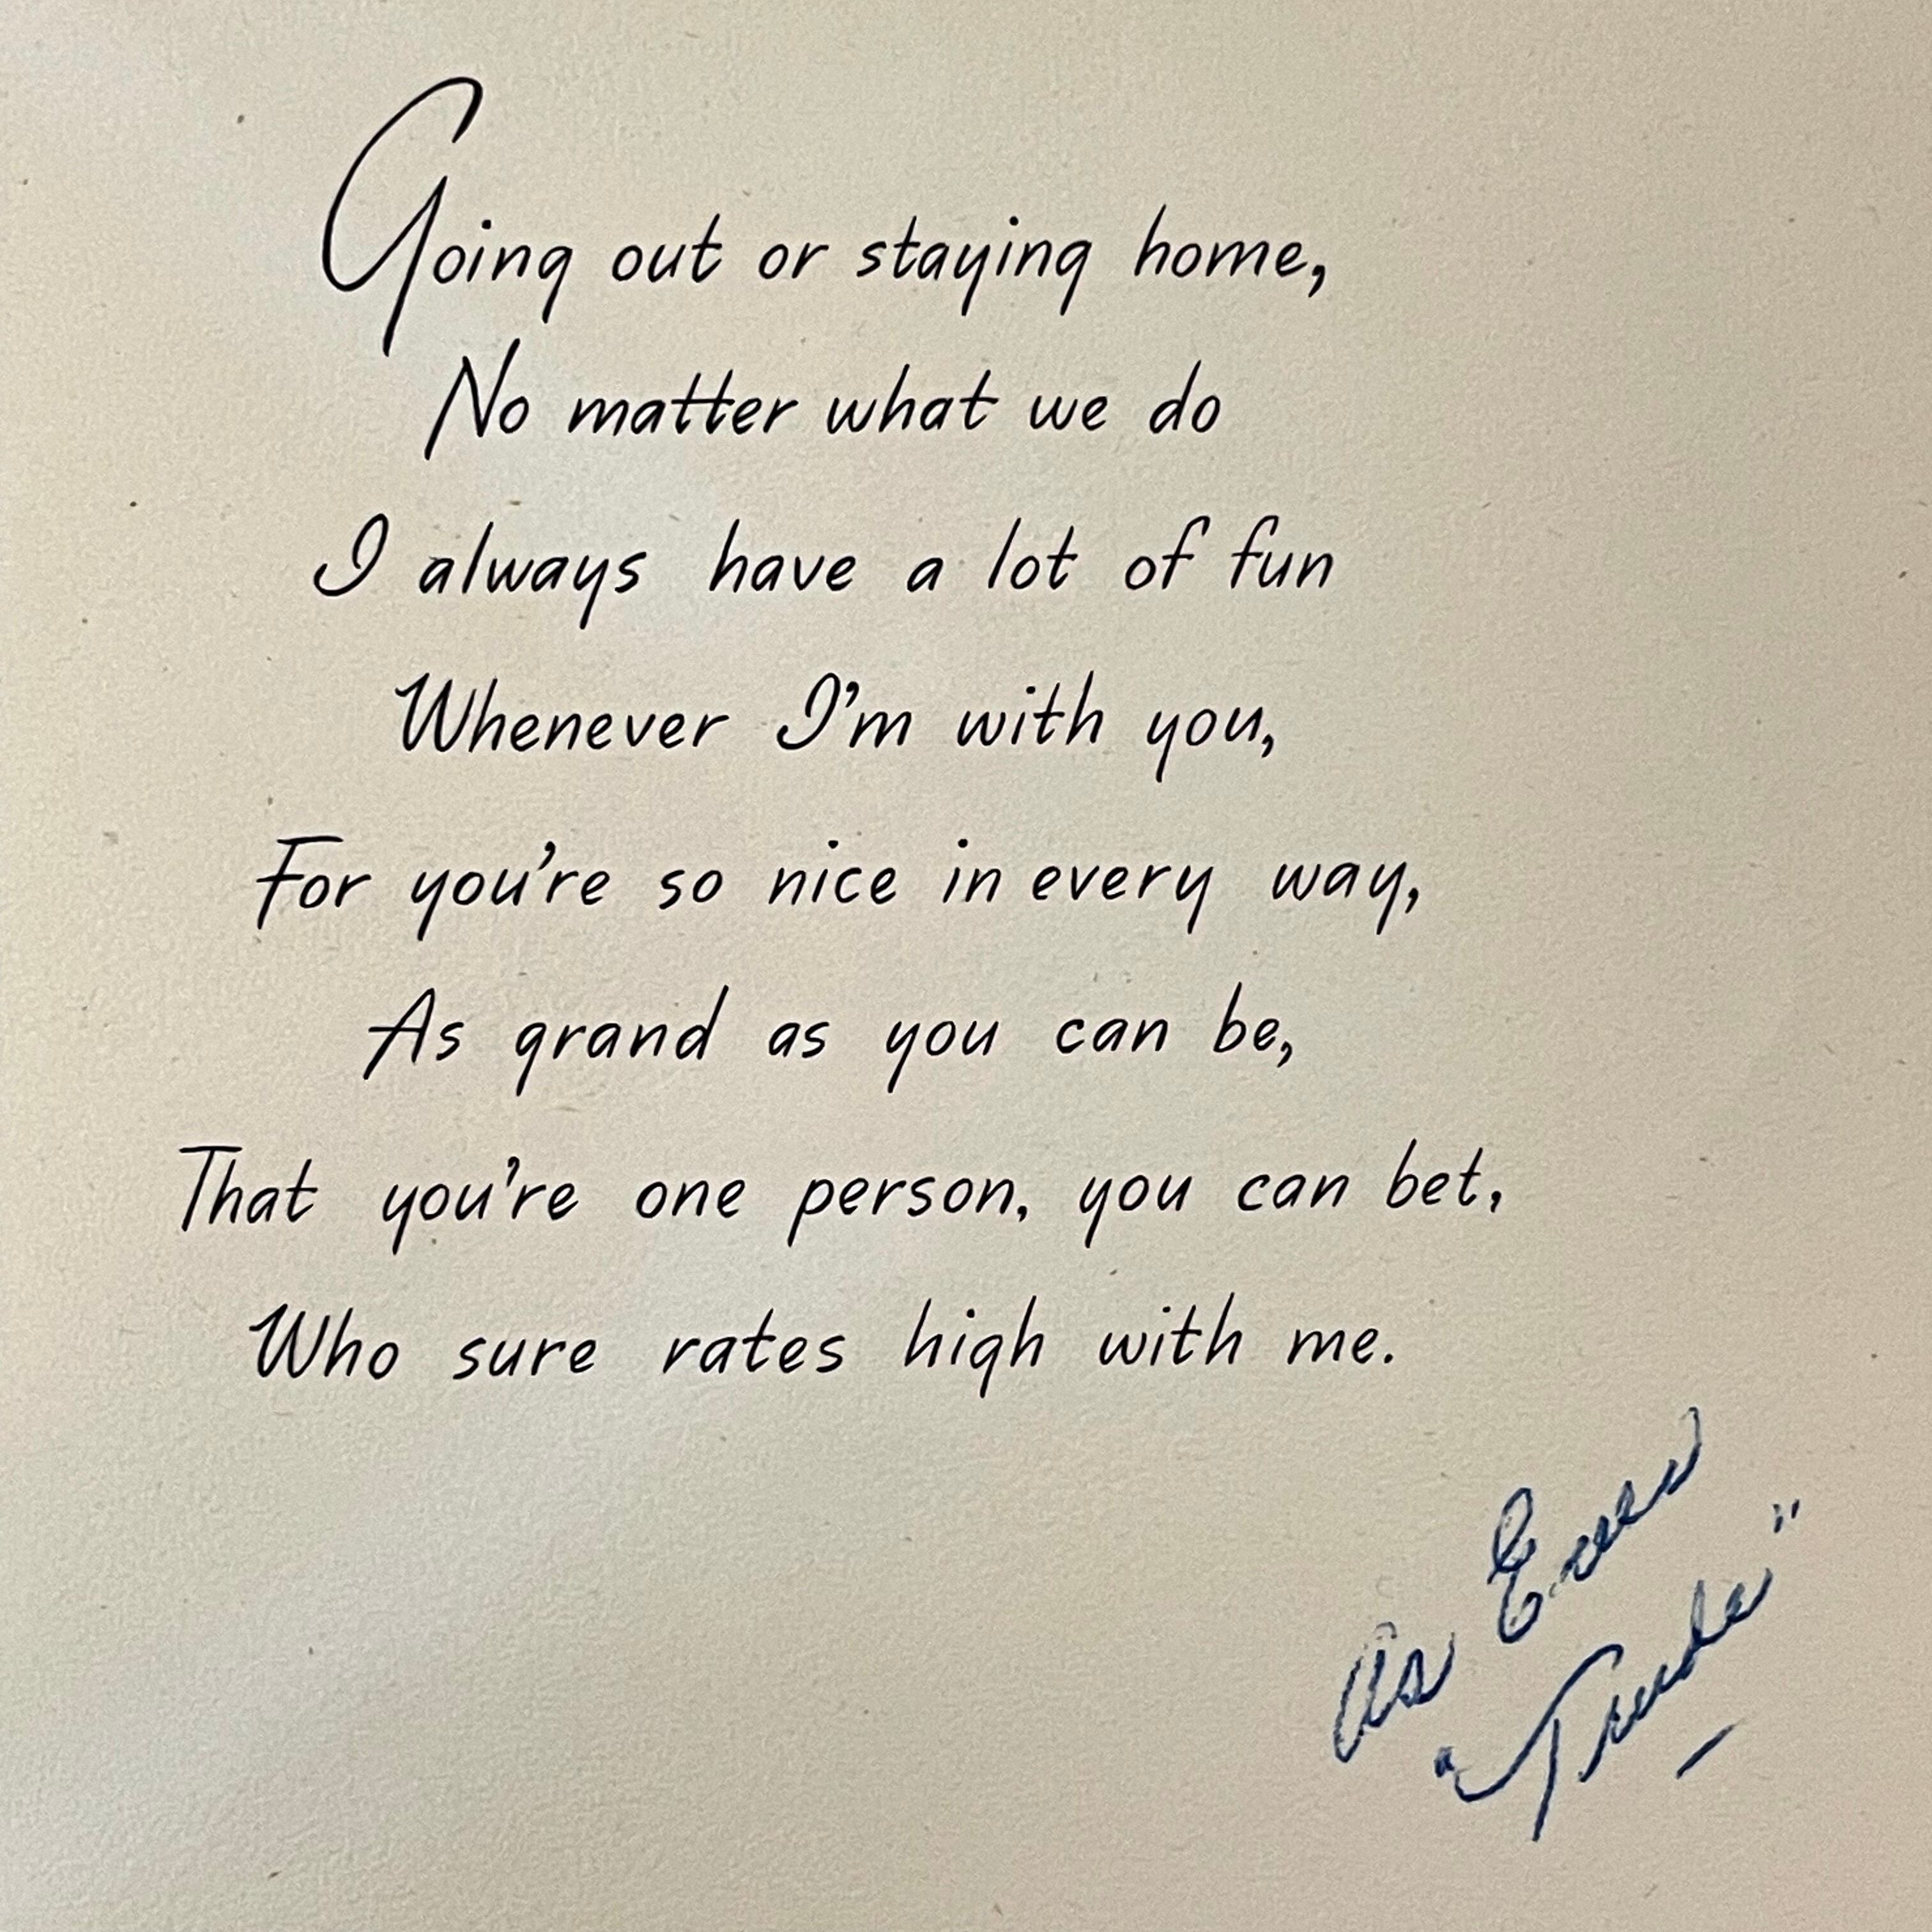 Going out or staying home,
No matter what we do
I always have a lot of fun
Whenever I'm with you,
For you're so nice in every way,
As grand as you can be,
That you're one person, you can bet,
Who sure rates high with me.
As Ever
"Trude"